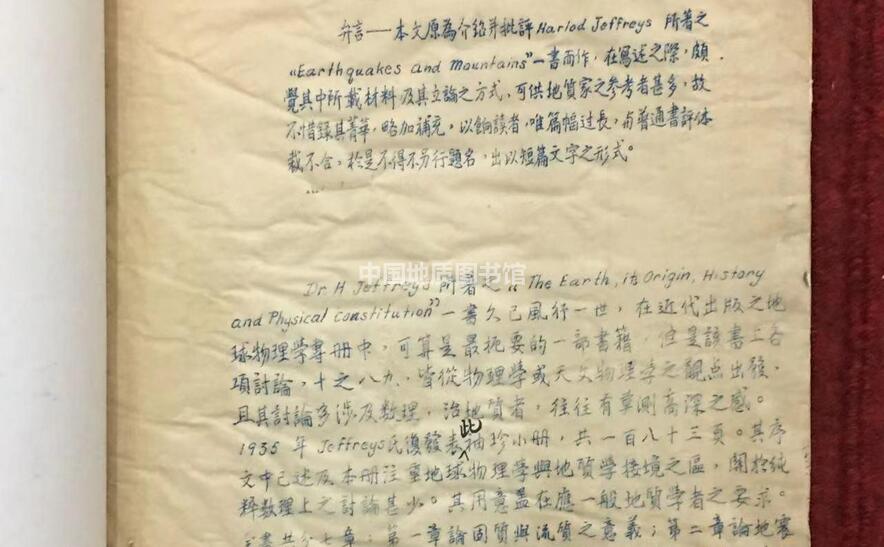 弁言——本文原為介紹并批評Harlod Jeffreys 所著之
“Earthquakes and Mountains”一書而作，在寫述之際，頗
覺其中所載材料及其立論之方式，可供地質家之參考者甚多，故
不惜錄其菁華，略加補充，以餉讀者，唯篇幅过長，与普通書評体
裁不合，於是不得不另行題名，出以短篇文字之形式。
...
中国地质图书馆
Dr. H Jeffreys 所著之“The Earth, its Origin, History
and Physical constitution”一書久已風行一世，在近代出版之地
球物理學專册中，可算是最扼要的一部書籍，但是該書上各
項討論，十之八九，皆從物理學或天文物理学之觀点出發，
且其討論多涉及数理，治地質者，往往有莫測高深之感。
1935 年 Jeffreys氏復發表此袖珍小册，共一百八十三頁。其序
文中已述及本册注重地球物理學與地質學接境之區，關於純
粹数理上之討論甚少。其用意蓋在應一般地質學者之要求。
全書共分七章：第一章論固質與流質之意義；第二章論地震